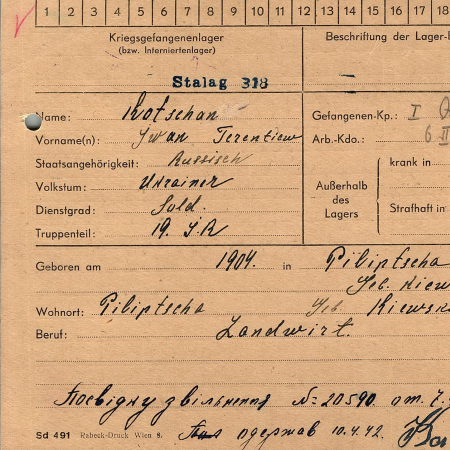 1 2 3 4 5 6 7 8 9 10 11 12 13 14 15 16 17 18
Kriegsgefangenenlager
(bzw. Interniertenlager)
Beschriftung der Lager-
Stalag 318
Name: Kotschan
Vorname(n): Iwan Terentiew
Staatsangehörigkeit: Russisch
Volkstum: Ukrainer
Dienstgrad: Sold.
Truppenteil: 19. I.R
Gefangenen-Kp.: I
Arb.-Kdo.: 6 II
Außerhalb des Lagers
krank in
Strafhaft in
Geboren am 1904. in Piliptscha
Geb. Kiew
Wohnort: Piliptscha Geb Kiewsk
Beruf: Landwirt.
Посвідку звільнення № 20590 от. 7.
Sd 491 Rabeck-Druck Wien 8. одержав 10.4.42.